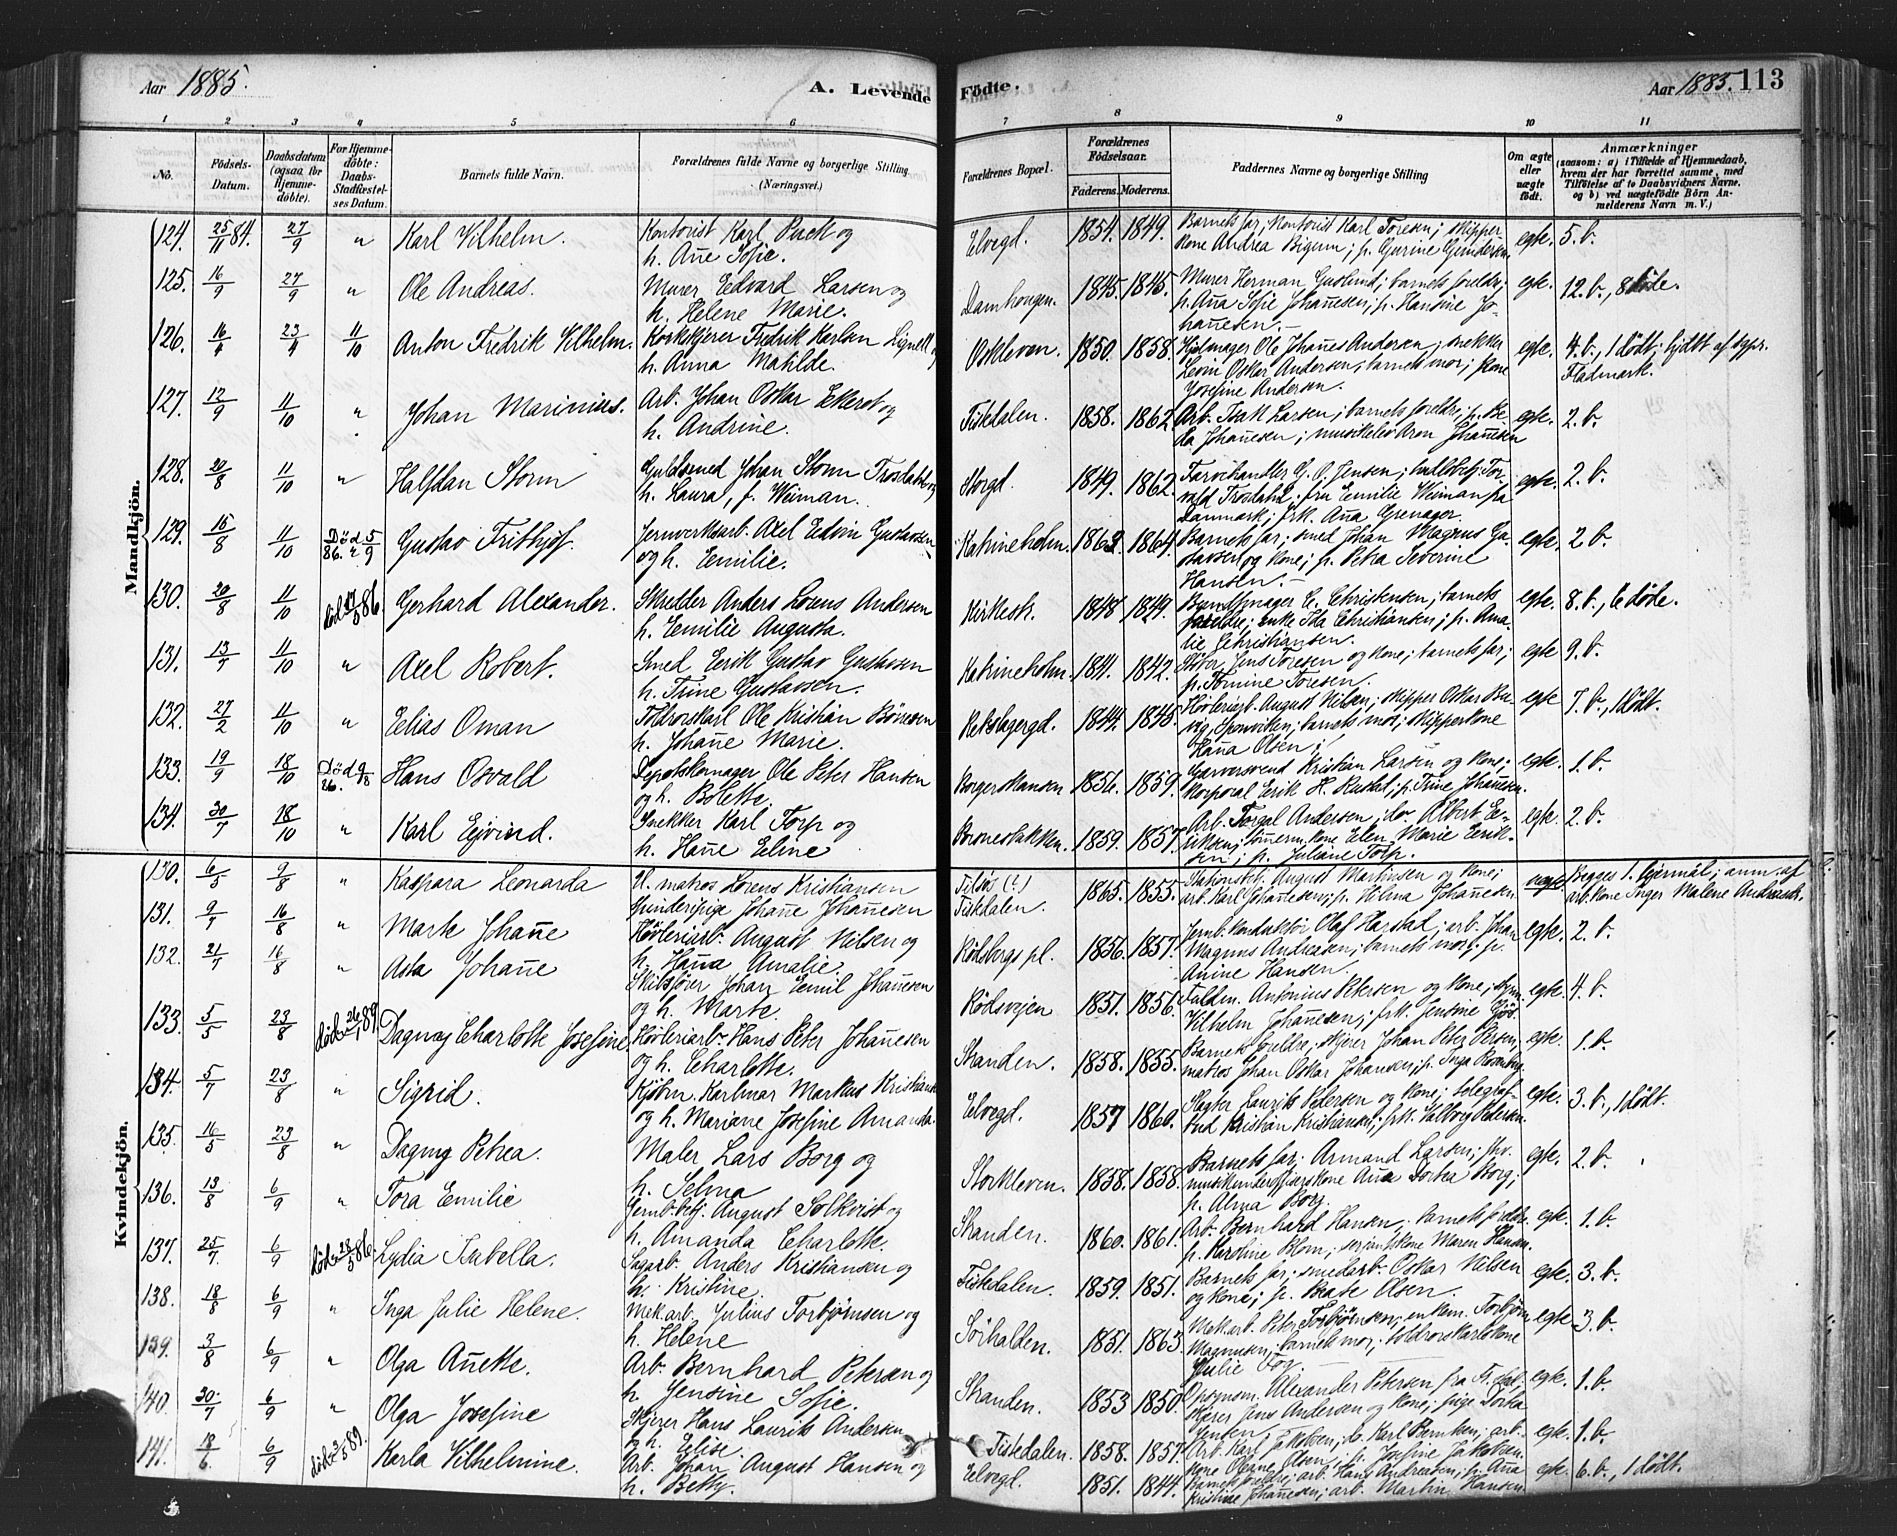 Aar 1885.
A. Levende
Fødte.
Aar 1885. 113
1 2 3 4 5 6 7 8 9 10 11
No.
Fødsels-
Datum.
Daabsdatum
(ogsaa for
Hjemme-
døbte).
For Hjemme-
døbte:
Daabs-
Stadfæstel-
ses Datum.
Barnets fulde Navn.
Forældrenes fulde Navne og borgerlige Stilling
(Næringsvei.)
Forældrenes Bopæl.
Forældrenes
Fødselsaar.
Faderens. Moderens.
Faddernes Navne og borgerlige Stilling
Om ægte
eller
uægte
født.
Anmærkninger
(saasom: a) i Tilfælde af Hjemmedaab,
hvem der har forrettet samme, med
Tilføielse af to Daabsvidners Navne,
og b) ved uægtefødte Børn An-
melderens Navn m. V.)
Mandkjön.
124. 25/11 84. 27/9 " Karl Vilhelm. Kontorist Karl og
h. Ane Sofie.
Elvegd. 1854. 1849. Barnets far; Kontorist Karl Toresen; skipper
kone Andrea Bigum; p. Gurine Gundersen.
egte. 5. b.
125. 16/9 27/9 " Ole Andreas. Murer Edvard Larsen og
h. Helene Marie.
Damhaugen. 1845. 1845. Murer Herman Guslund; barnets foreldre;
p. Ana Sofie Johanesen; p. Hansine Jo-
hanesen.
egte. 12. b., 8 døde.
126. 16/4 23/4 11/10 Anton Fredrik Vilhelm. Korkskjærer Fredrik Karlsen Lignell og
h. Anna Matilde.
Oskleven. 1850. 1858. Hjulmager Ole Johanes Andersen; snekker
Leon Oskar Andersen; barnets mor; kone
Josefine Andersen.
egte. 4. b., 1 dødt; hjdbt af sgpr.
Fladmark.
127. 12/9 11/10 " Johan Marinius. Arb. Johan Oskar Ekerot og
h. Andrine.
Fiskdalen. 1858. 1862. Arb. Isak Larsen; barnets foreldr; p. Be-
da Johanesen; musikelev Aron Johanesen
egte. 2. b.
128. 20/8 11/10 " Halfdan Storm Guldsmed Johan Storm Trosdahl og
h. Laura, f. Weiman.
Storgd. 1849. 1862. Farvehandler G. O. Jensen; Tor-
vald Trosdahl; fru Emilie Weiman fra
Danmark; frk. Ana Grenager.
egte. 2. b.
129. 15/8 11/10 Død 5/9 86. Gustav Frithjof. Jernverksarb. Axel Edvin Gustavsen
og h. Emilie.
Katrineholm. 1863. 1864. Barnets far; smed Johan Magnus Gu-
stavsen og kone; p. Petra Severine
Hansen.
egte. 2 b.
130. 20/8 11/10 død 17/5 86 Gerhard Alexander. Skredder Anders Lorens Andersen
h. Emilie Augusta.
Kirkesk. 1848 1849. Bundtmager C. Christensen; barnets
foreldre; enke Ida Christiansen; p. Ama-
lie Christiansen.
egte. 8. b., 6 døde.
131. 13/7 11/10 " Axel Robert. Smed Erik Gustav Gustavsen
h. Trine Gustavsen.
Katrineholm. 1841. 1842. Jens Toresen og kone; barnets far;
p. Tomine Toresen.
egte 9. b.
132. 27/2 11/10 " Elias Oman Toldroskarl Ole Kristian Børresen
h. Johane Marie.
Repslagergd. 1844. 1845. Høvleriarb. August Nilsen; skipper Oskar
Sponviken; barnets mor; skipperkone
Hana Olsen;
egte 7. b., 1 dødt.
133. 19/9 18/10 Død 9/8 26. Hans Osvald Depotskomager Ole Peter Hansen
og h. Bolette.
Borgerskansen 1856. 1859. Garversvend Kristian Larsen og kone;
korporal Erik H. ; p. Trine Johanesen.
egte. 1. b.
134. 30/7 18/10 " Karl Ejvind. Snekker Karl Torp og
h. Hane Eline
Boronestakken. 1859. 1857. Arb. Torgal Andersen; do. Albert Er-
iksen; tømerm. kone Elen Marie Erik-
sen; p. Juliane Torp.
egte. 2. b.
Kvindekjön.
130. 6/5 9/8 " Kaspara Leonarda U. matros Lorens Kristiansen
Spinderipige Johane Johanesen
Tistø (?)
Fiskdalen.
1865. 1855. Stationsbet. August Martinsen og kone;
arb. Karl Johanesen; p. Hilma Johanesen
uegte. Begges 1. lejermål; anm. af
arb. kone Inger Malene Andreasd.
131. 9/7 16/8 " Marte Johane Høvleriarb. August Nilsen og
h. Hana Amalie.
Rødsbergs pl. 1856. 1857. Jernb. konduktør Olaf Harstad; arb. Johan
Magnus Andreasen; barnets mor; p.
Anine Hansen.
egte. 2. b.
132. 21/7 16/8 " Asta Johane Skibsfører Johan Emil Johanesen
og h. Marte.
Rødsvejen 1851. 1856. Antonius Petersen og kone;
Vilhelm Johanesen; frk. Jensine
egte. 4. b.
133. 5/5 23/8 død 26/1 89 Dagny Charlotte Josefine. Høvleriarb. Hans Peter Johanesen
og h. Charlotte.
Stranden. 1858. 1855. Barnets foreldre; skjærer Johan Peter Persen;
matros Johan Oskar Johansen; p. Inga
egte. 1. b.
134. 5/7 23/8 " Sigrid. Kjøbm. Karlmar Markus Kristiansen
og h. Mariane Josefine Amanda.
Elvegd. 1857 1860. Slagter Laurits Pedersen og kone; telegraf-
bud Kristian Kristiansen; frk. Valborg Pedersen.
egte. 3. b., 1 dødt.
135. 16/5 23/8 " Dagny Petrea. Maler Lars Borg og
h. Selma
Storkleven. 1858. 1858. Barnets far; Armand Larsen; fhv.
kone Ana Dortea Borg;
p. Alma Borg.
egte. 2. b.
136. 13/8 6/9 " Tora Emilie Jernb. betj. August Solkvist og
h. Amanda Charlotte.
Stranden. 1860. 1861. Arb. Bernhard Hansen; barnets foreldre
p. Karoline Blom; serjantkone Maren Hansen.
egte. 1. b.
137. 25/7. 6/9 død 28/5 86. Lydia Isabella. Sagarb. Anders Kristiansen og
h. Kristine.
Fiskedalen. 1859. 1851. Barnets far; smedarb. Oskar Nilsen
og kone; p. Beate Olsen.
egte. 3. b.
138. 18/8 6/9 " Inga Julie Helene. Mek. arb. Julius Torbjørnsen og
h. Helene
Sørhalden. 1851. 1863. Mek. arb. Peter Torbjørnsen; enkem. Torbjørn
Magnusen; barnets mor; toldroskarlskone
Julie Fog.
egte 3. b.
139. 3/8 6/9 " Olga Anette. Arb. Bernhard Petersen og
h. Jensine Sofie.
Stranden. 1853 1850. Opsynsm. Alexander Petersen fra
skjærer Jens Andersen og kone; pige Dorthea
Jensen
egte. 1. b.
140. 30/7 6/9 " Olga Josefine Skjærer Hans Laurits Andersen
og h. Elise.
Fiskedalen. 1858. 1857. Arb. Karl Jakobsen; do. Karl Berntsen; arb.
kone Olsen; p. Josefine Jakobsen.
egte. 1. b.
141. 18/6 6/9 død 3/5 89. Karla Vilhelmine. Arb. Johan August Hansen og
h. Betty.
Elvegd. 1851. 1844. Barnets foreldre; arb. Hans Andreasen; p. Ana
Kristine Johanesen; arb. Martin Hansen
egte. 6. b., 1 dødt.